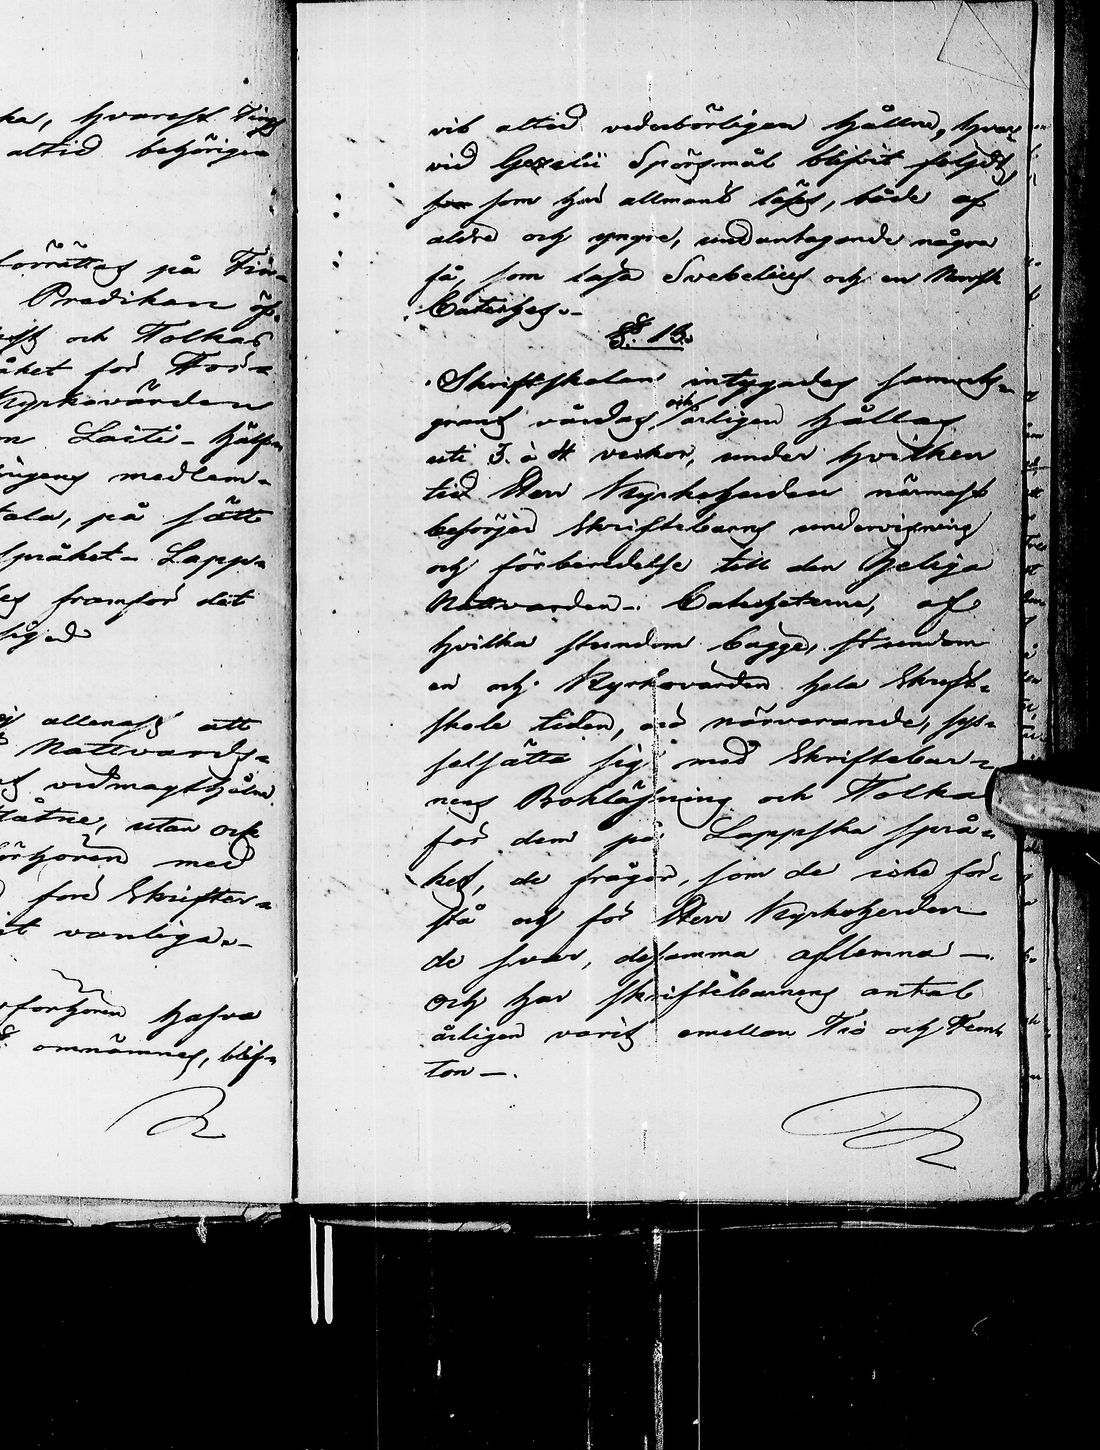 ka, hvarest Ting
altid behörigen
förrättas på Fin-
Predikan öf-
och Tolkas
åket for För-
Kyrkovärden
Laiti- hjälper
ingens medlem-
tala, på sätt
Språket- Lapp-
es framför det
ej allenast att
Nattvards-
vidmagthålne
låtne, utan ock
örhören med
före Skrifter-
it vanliga.-
förhören hafva
omnämnes, blif-
vit altid vederbörligen hållne, hvar-
vid Gezelii Spörsmål blifvit följdt,
som här allmänt läses, både af
äldre och yngre, undantagande några
få, som läsa Svebelius och en Norsk
Cateches.-
§. 13.
Skriftskolan intygades samvets-
grant vårdas, och årligen hållas
uti 3. à 4 veckor, under hvilken
tid Herr Kyrkoherden närmast
besörjer Skriftebarns undervisning
och förberedelse till den Heliga
Nattvarden-. Catecheterne, af
hvilka stundom bägge, stundom
en och Kyrkovärden hela Skrift-
skole tiden, äro närvarande, sys-
selsätta sig med Skriftebar-
nens Bokläsning och Tolka
för dem på Lappska språ-
ket, de frågor, som de icke för-
stå och för Herr Kyrkoherden
de svar, desamma aflemna —.
Och har skriftebarnens antal
årligen varit emellan Tio och Fem-
ton —.